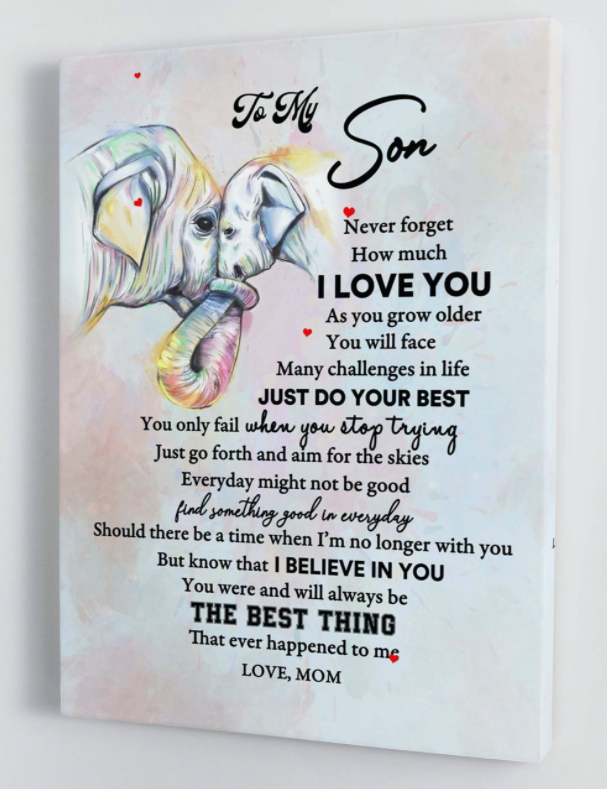 To My
Son
Never forget
How much
I LOVE YOU
As you grow older
You will face
Many challenges in life
JUST DO YOUR BEST
You only fail when you stop trying
Just go forth and aim for the skies
Everyday might not be good
find something good in everyday
Should there be a time when I'm no longer with you
But know that I BELIEVE IN YOU
You were and will always be
THE BEST THING
That ever happened to me
LOVE, MOM